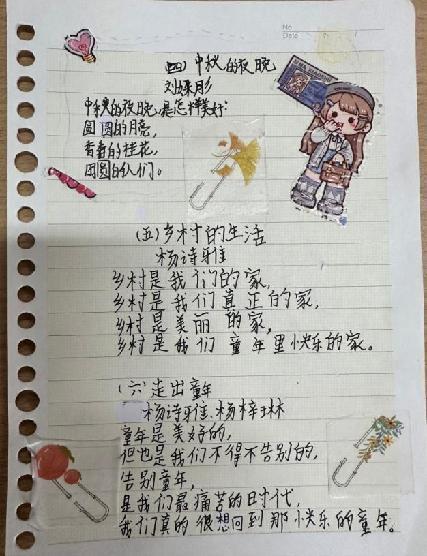 No
Date
(四)中秋的夜晚
刘彩彤
中秋的夜晚,是怎样美好?
圆圆的月亮,
香香的桂花,
团圆的人们。
(五)乡村的生活
杨诗雅
乡村是我们的家,
乡村是我们真正的家,
乡村是美丽的家,
乡村是我们童年里快乐的家。
(六)走出童年
杨诗雅.杨梓琳
童年是美好的,
但也是我们不得不告别的,
告别童年,
是我们最痛苦的日时代,
我们真的很想回到那小快乐的童年。